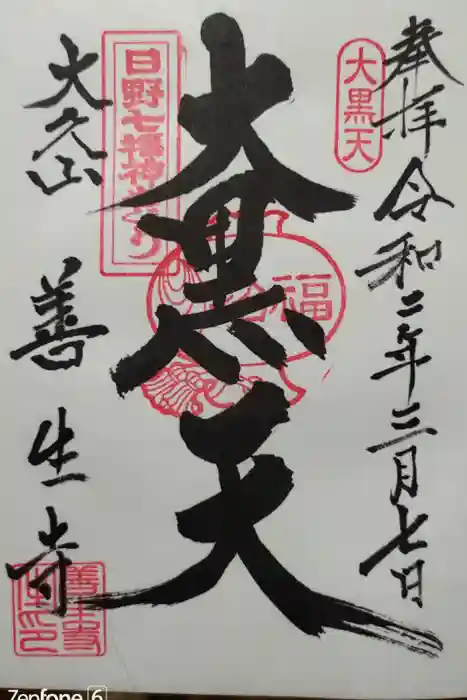 奉拝 令和二年三月七日
大黒天
大黒天
福
日野七福神めぐり
大久山 善生寺
Zenfone 6